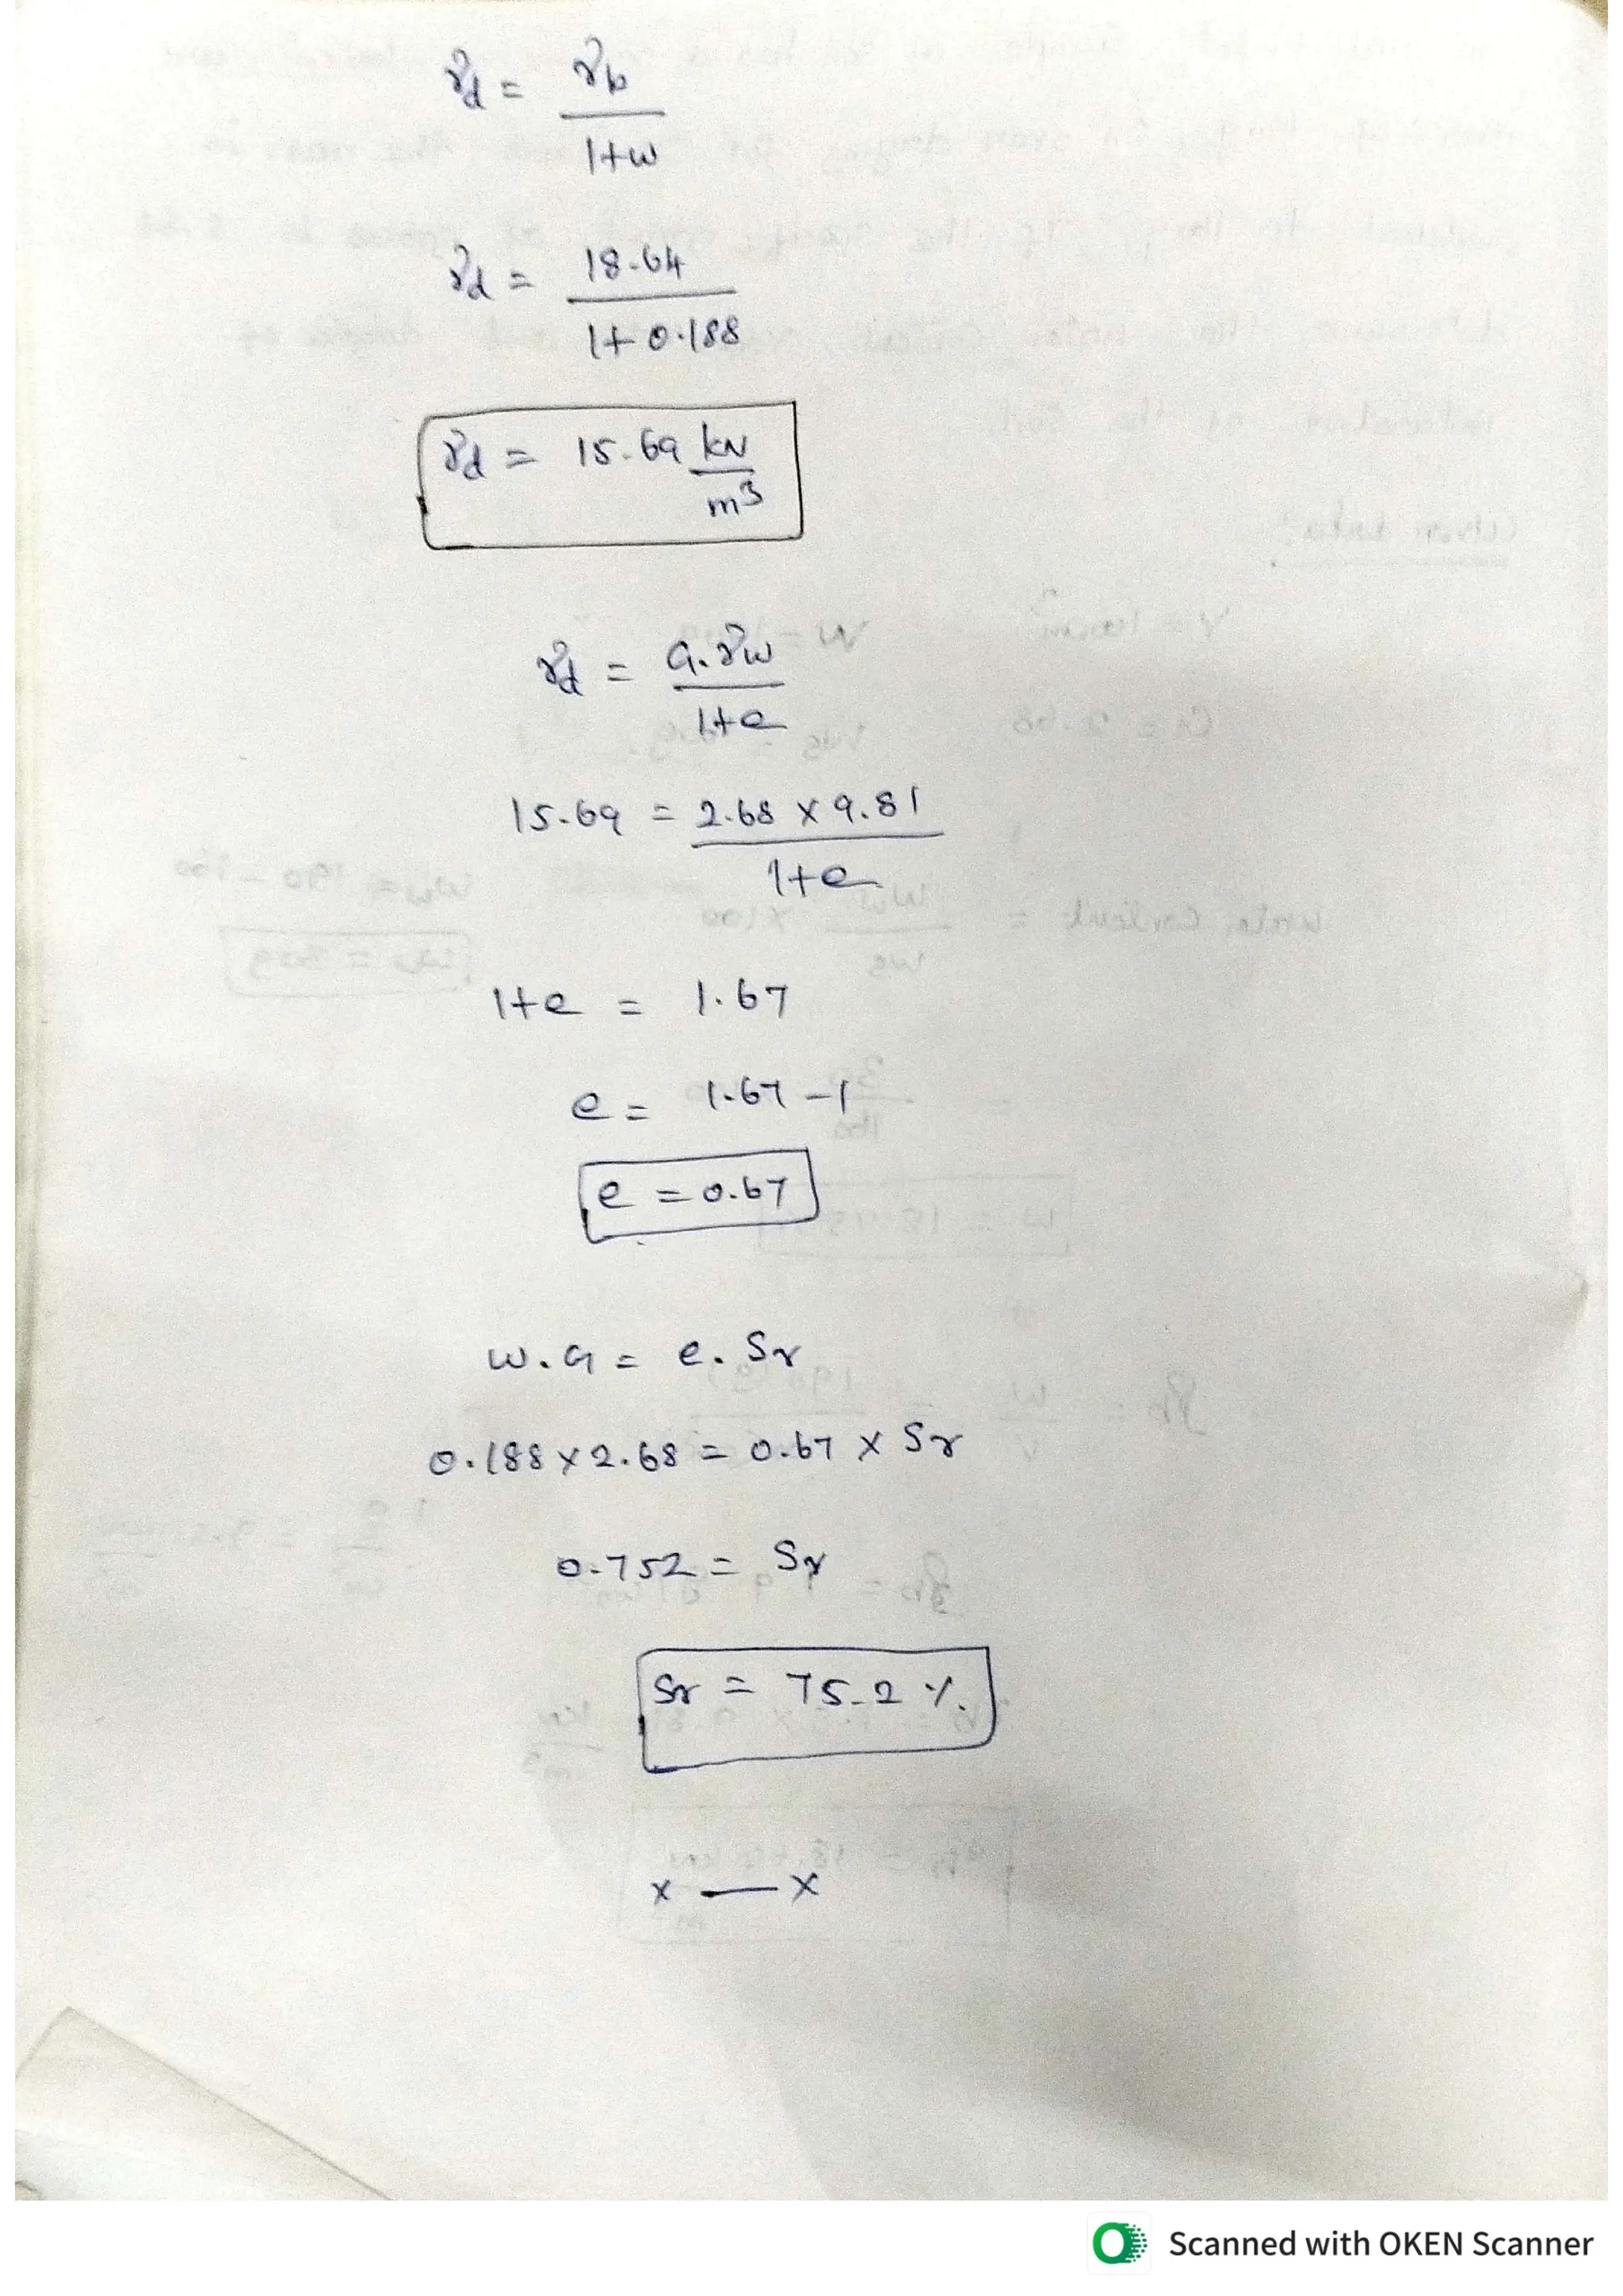 γd = γb / 1+w
γd = 18.64 / 1+0.188
γd = 15.69 kN/m³
γd = G.γw / 1+e
15.69 = 2.68 × 9.81 / 1+e
1+e = 1.67
e = 1.67 - 1
e = 0.67
w.G = e.Sr
0.188 × 2.68 = 0.67 × Sr
0.752 = Sr
Sr = 75.2 %.
x — x
Scanned with OKEN Scanner